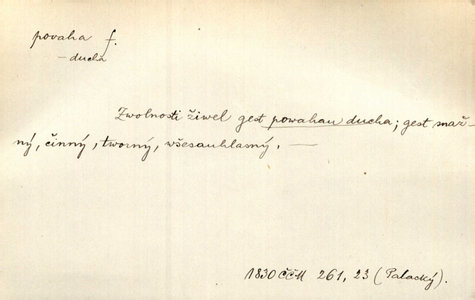 povaha f.
– ducha
Zwolnosti žiwel gest powahau ducha; gest snaž-
ný, činný, tworný, wšesauhlasný. —
1830 ČČM 261, 23 (Palacký).